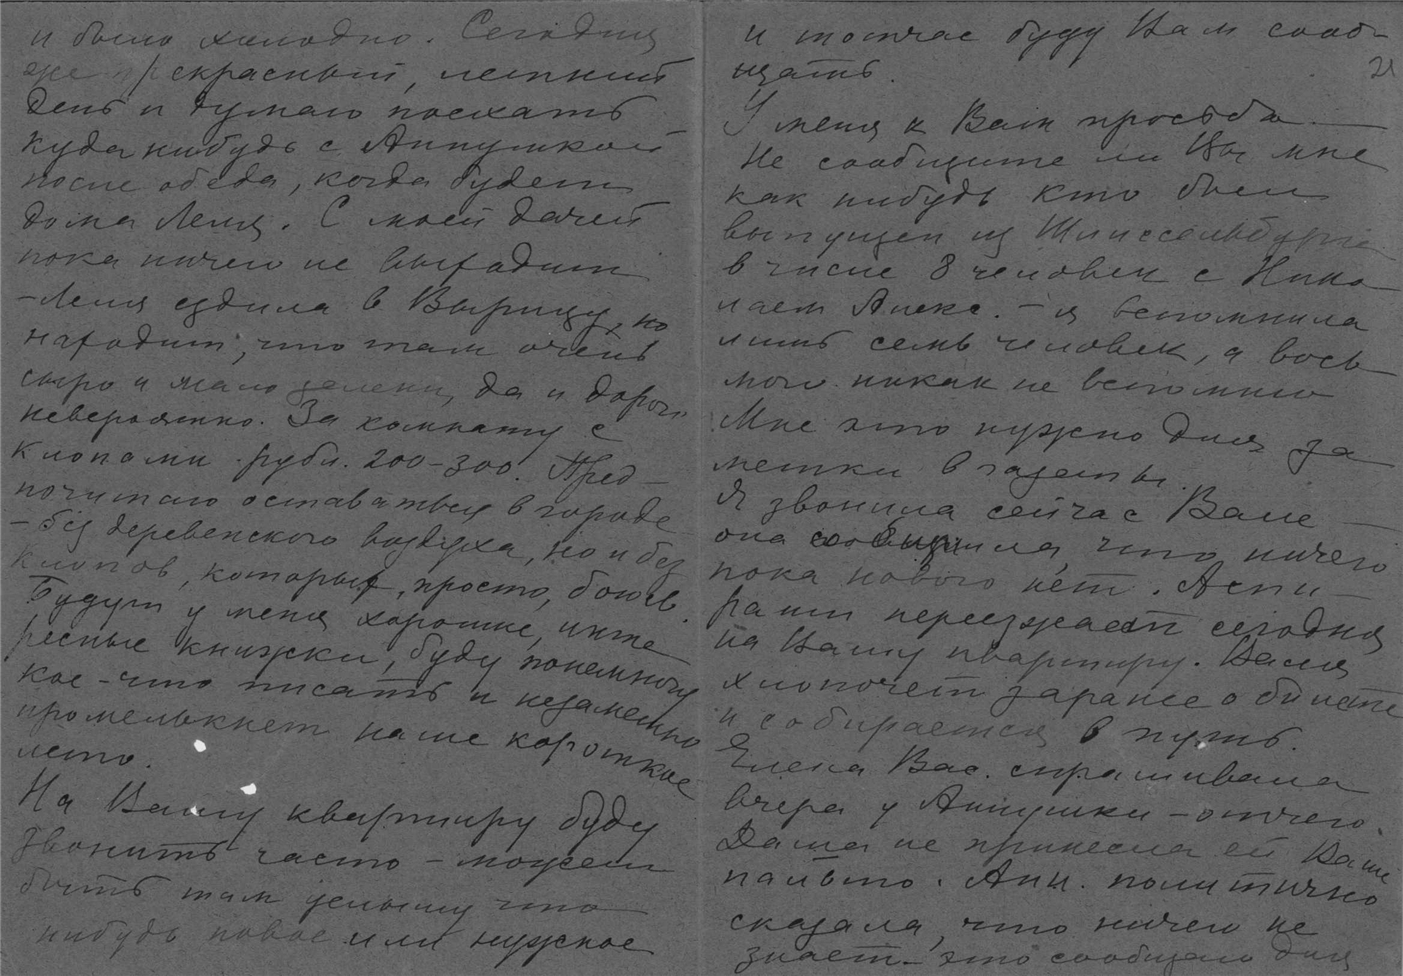 и было холодно. Сегодня
же прекрасный, летний
день и думаю поехать
куда нибудь с Аннушкой
после обеда, когда будет
дома Леля. С моей дачей
пока ничего не выходит
– Леля ездила в Вырицу, но
находит, что там очень
сыро и мало зелени, да и дорого
невероятно. За комнату с
клопами рубл. 200–300. Пред–
почитаю оставаться в городе
– без деревенского воздуха, но и без
клопов, которых, просто, боюсь.
Будут у меня хорошие, инте
ресные книжки, буду понемногу
кое-что писать и незаметно
промелькнет наше короткое
лето.
На Вашу квартиру буду
звонить часто – может
быть там услышу что
нибудь новое или нужное
и тотчас буду Вам сооб–
щать.
21
У меня к Вам просьба –
Не сообщите ли Вы мне
как нибудь кто был
выпущен из Шлиссельбурга
в числе 8 человек с Нико
лаем Алекс. – я вспомнила
лишь семь человек, а вось–
мого никак не вспомню
Мне это нужно для за
метки в газеты.
Я звонила сейчас Вале –
она сообщила, что ничего
пока нового нет. Аспи–
ранты переезжает сегодня
на Вашу квартиру. Валя
хлопочет заранее о билете
и собирается в путь.
Елена Вас. спрашивала
вчера у Аннушки – отчего
Даша не принесла ей Ваше
пальто. Анн. политично
сказала, что ничего не
знает – это сообщаю для